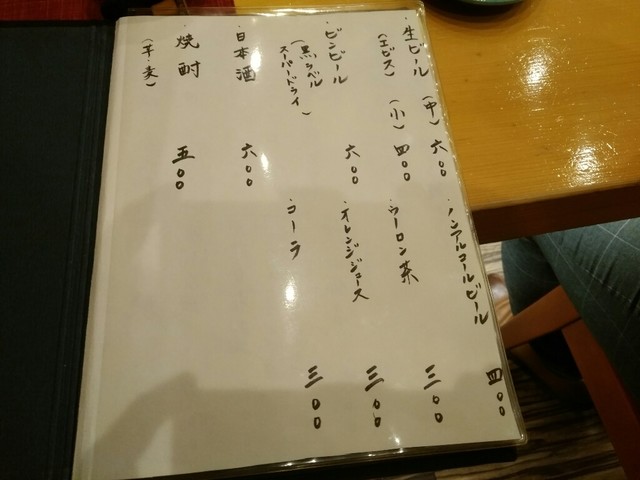 ・生ビール (中) 六〇〇
(エビス) (小) 四〇〇
・ビンビール 六〇〇
(黒ラベル
スーパードライ)
・日本酒 六〇〇
・焼酎 五〇〇
(芋・麦)
・ノンアルコールビール 四〇〇
・ウーロン茶 三〇〇
・オレンジジュース 三〇〇
・コーラ 三〇〇